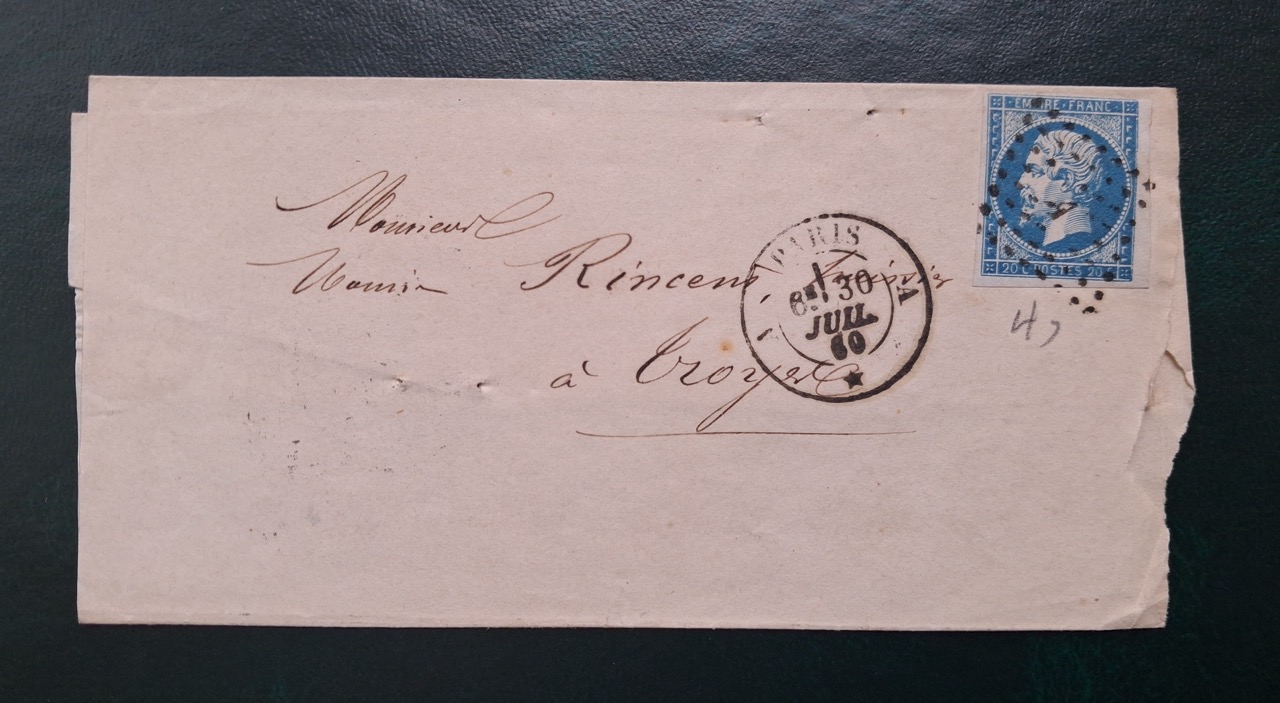 EMPIRE·FRANC·
20 C POSTES 20 C
A
PARIS
A
8E 30
JUIL.
60
Monsieur
Rincent,
à Troyes
4